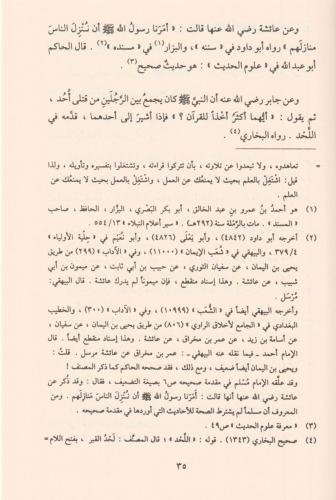 وعن عائشة رضي الله عنها قالت : « أَمَرَنا رسولُ الله ﷺ أن نُنْزِلَ الناسَ
منازلَهم » رواه أبو داود في « سننه » ، والبزار(١) في « مسنده »(٢) . قال الحاكم
أبو عبد الله في « علوم الحديث » : هو حديثٌ صحيح(٣) .
وعن جابر رضي الله عنه أن النبيَّ ﷺ كان يجمعُ بين الرَّجُلَينِ من قتلى أُحُد ،
ثم يقول : « أيُّهما أكثرُ أَخْذاً للقرآن ؟ » فإذا أُشيرَ إلى أحدهما ، قدَّمه في
اللَّحْد . رواه البخاري(٤) .
= تعاهدوه ، ولا تبعدوا عن تلاوته ، بأن تتركوا قراءته ، وتشتغلوا بتفسيره وتأويله ، ولذا
قيل : اشتَغِلْ بالعلم بحيث لا يمنعُك عن العمل ، واشتَغِلْ بالعمل بحيث لا يمنعُك عن
العلم .
(١) هو أحمدُ بنُ عمرو بنِ عبد الخالق ، أبو بكر البَصْري ، البزَّار ، الحافظ ، صاحب
« المسند » . مات بالرَّملة سنة (٢٩٢هـ) . « سير أعلام النبلاء » ١٣ / ٥٥٤ .
(٢) أخرجه أبو داود (٤٨٤٢) ، وأبو يَعْلَى (٤٨٢٦) ، وأبو نُعَيْم في « حِلْية الأولياء »
٤ / ٣٧٩ ، والبيهقي في « شُعَب الإيمان » (١١٠٠٠) ، وفي « الآداب » (٢٩٩) من طريق
يحيى بن اليمان ، عن سفيان الثوري ، عن حبيب بن أبي ثابت ، عن ميمون بن أبي
شبيب ، عن عائشة . وهذا إسناد منقطع ، فإن ميموناً لم يدرك عائشة . قال البيهقي :
مُرْسَل .
وأخرجه البيهقي أيضاً في « الشُّعَب » (١٠٩٩٩) ، وفي « الآداب » (٣٠٠) ، والخطيب
البغدادي في « الجامع لأخلاق الراوي » (٨٠٦) من طريق يحيى بن اليمان ، عن سفيان ،
عن أسامة بن زيد ، عن عمر بن مخراق ، عن عائشة . وهذا إسناد منقطع أيضاً . قال
الإمام أحمد ـ فيما نقله عنه البيهقي ـ : عمر بن مخراق عن عائشة مرسل . قلتُ :
ويحيى بن اليمان أيضاً ضعيف ، ومع ذلك ، فقد صححه الحاكم كما ذكر المصنف !
وقد علَّقه الإمام مُسْلم في مقدمة صحيحه ص٦ بصيغة التضعيف ، فقال : وقد ذُكر عن
عائشة رضي الله عنها أنها قالت : أَمَرَنا رسولُ الله ﷺ أن نُنْزِلَ الناسَ مَنازِلَهم . ومن
المعروف أن مسلماً لم يشترط الصحة للأحاديث التي أوردها في مقدمة صحيحه .
(٣) « معرفة علوم الحديث » ص٤٩ .
(٤) صحيح البخاري (١٣٤٣) . قوله : « اللَّحْد » ؛ قال المصنِّف : لَحْدُ القبر ، بفتح اللام =
٣٥